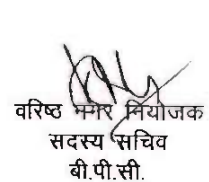 वरिष्ठ नगर नियोजक
सदस्य सचिव
बी.पी.सी.